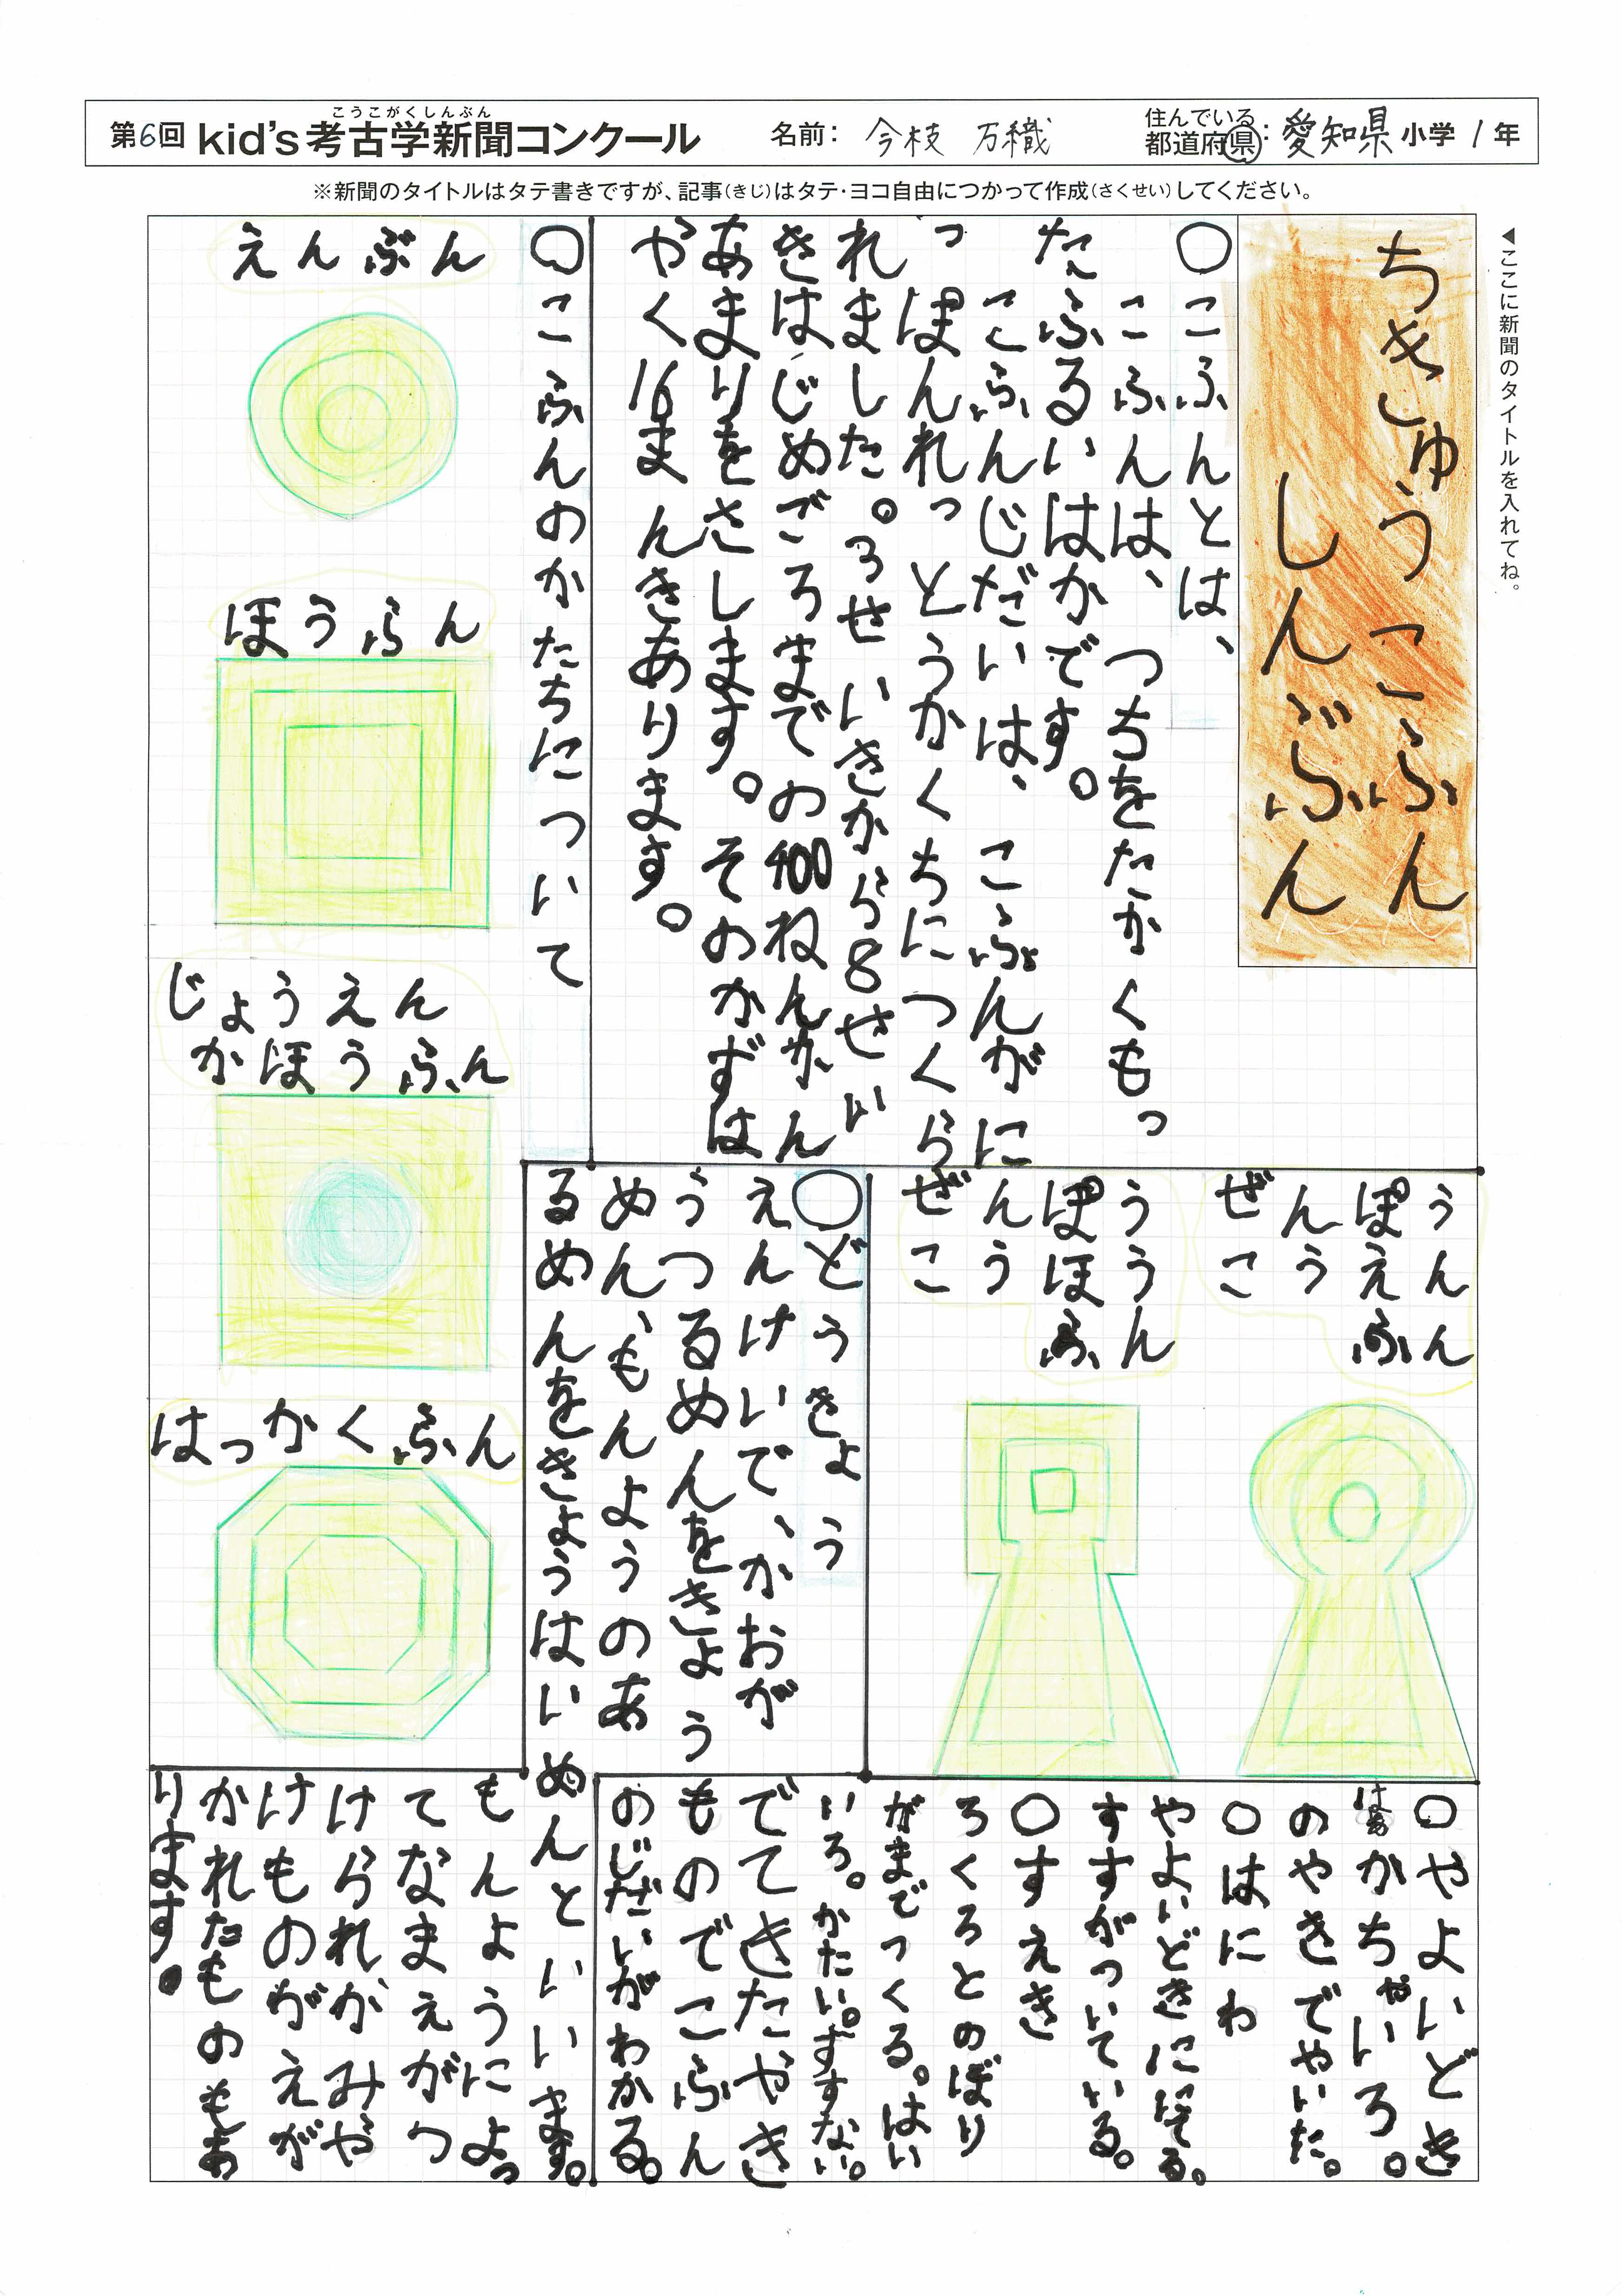 こうこがくしんぶん
第6回 kid's考古学新聞コンクール 名前: 今枝 万織 住んでいる都道府県: 愛知県 小学1年
※新聞のタイトルはタテ書きですが、記事(きじ)はタテ・ヨコ自由につかって作成(さくせい)してください。
◀ここに新聞のタイトルを入れてね。
ちきゅうこふん
しんぶん
○こふんとは、
こふんは、つちをたかくもっ
たふるいはかです。
こふんじだいは、こふんがに
っぽんれっとうかくちにつくら
れました。3せいきから8せい
きはじめごろまでの400ねんかん
あまりをさします。そのかずは
やく16まんきあります。
○こふんのかたちについて
えんぷん
ほうふん
じょうえん
かほうふん
はっかくふん
うんん
ぽえふ
んう
ぜこ
ううん
ぽほふ
んう
ぜこ
○どうきょう
えんけいで、かおが
うつるめんをきょう
めん、もんようのあ
るめんをきょうはいめんといいます。
もんようによっ
てなまえがつ
けられかみや
けものがえが
かれたものもあ
ります。
○やよいどき
はあかちゃいろ。
のやきでやいた。
○はにわ
やよいどきににてる。
すすがついている。
○すえき
ろくろとのぼり
がまでつくる。はい
いろ。かたい。すすない。
でてきたやき
ものでこふん
のじだいがわかる。